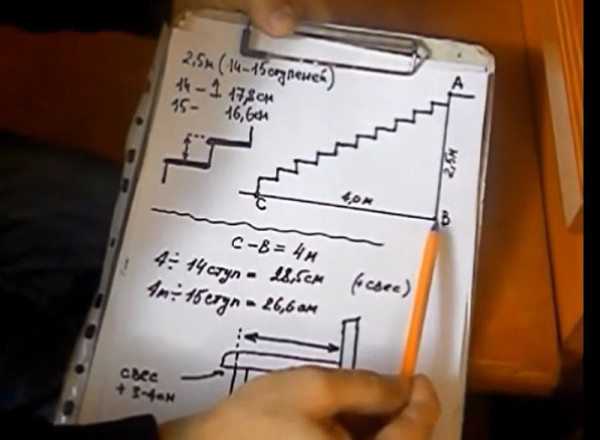 2,5м (14-15ступеней)
14- 17,8см
15- 16,6см
A
2,5м
4,0м
C
B
C-B = 4м
4÷14ступ= 28,5см
(+свес)
4м÷15ступ= 26,6см
свес
+ 3-4см